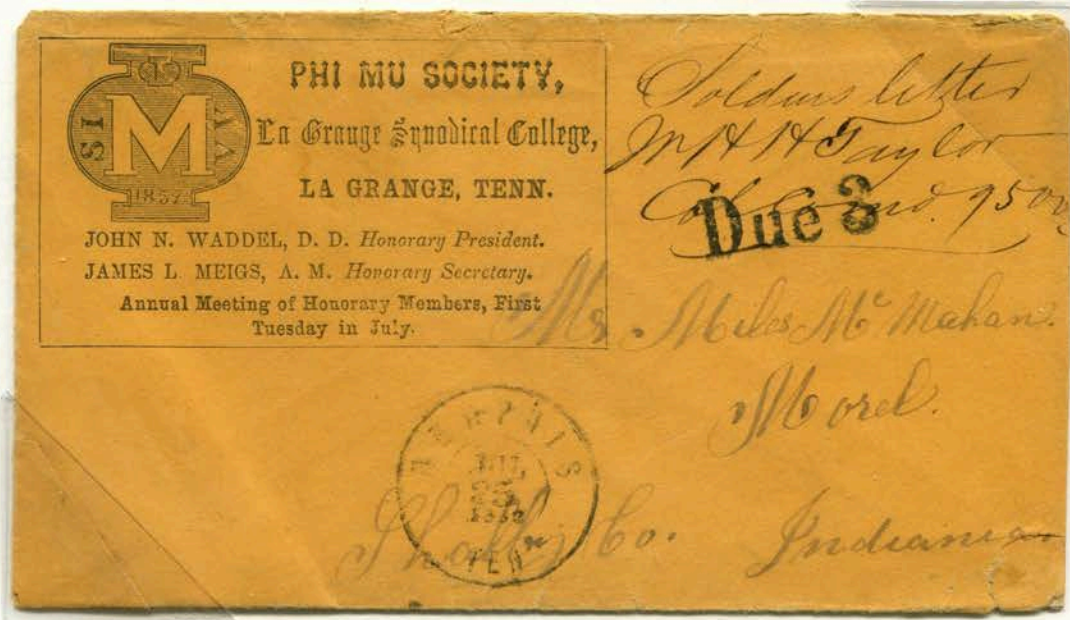 Φ
SI M ΛΑ
1857
PHI MU SOCIETY,
La Grange Synodical College,
LA GRANGE, TENN.
JOHN N. WADDEL, D. D. Honorary President.
JAMES L. MEIGS, A. M. Honorary Secretary.
Annual Meeting of Honorary Members, First
Tuesday in July.
Soldiers letter
Taylor
Due 3
Mr. Miles McMahan.
Morel.
Shelby Co. Indiana
MEMPHIS
JUL
1862
TEN